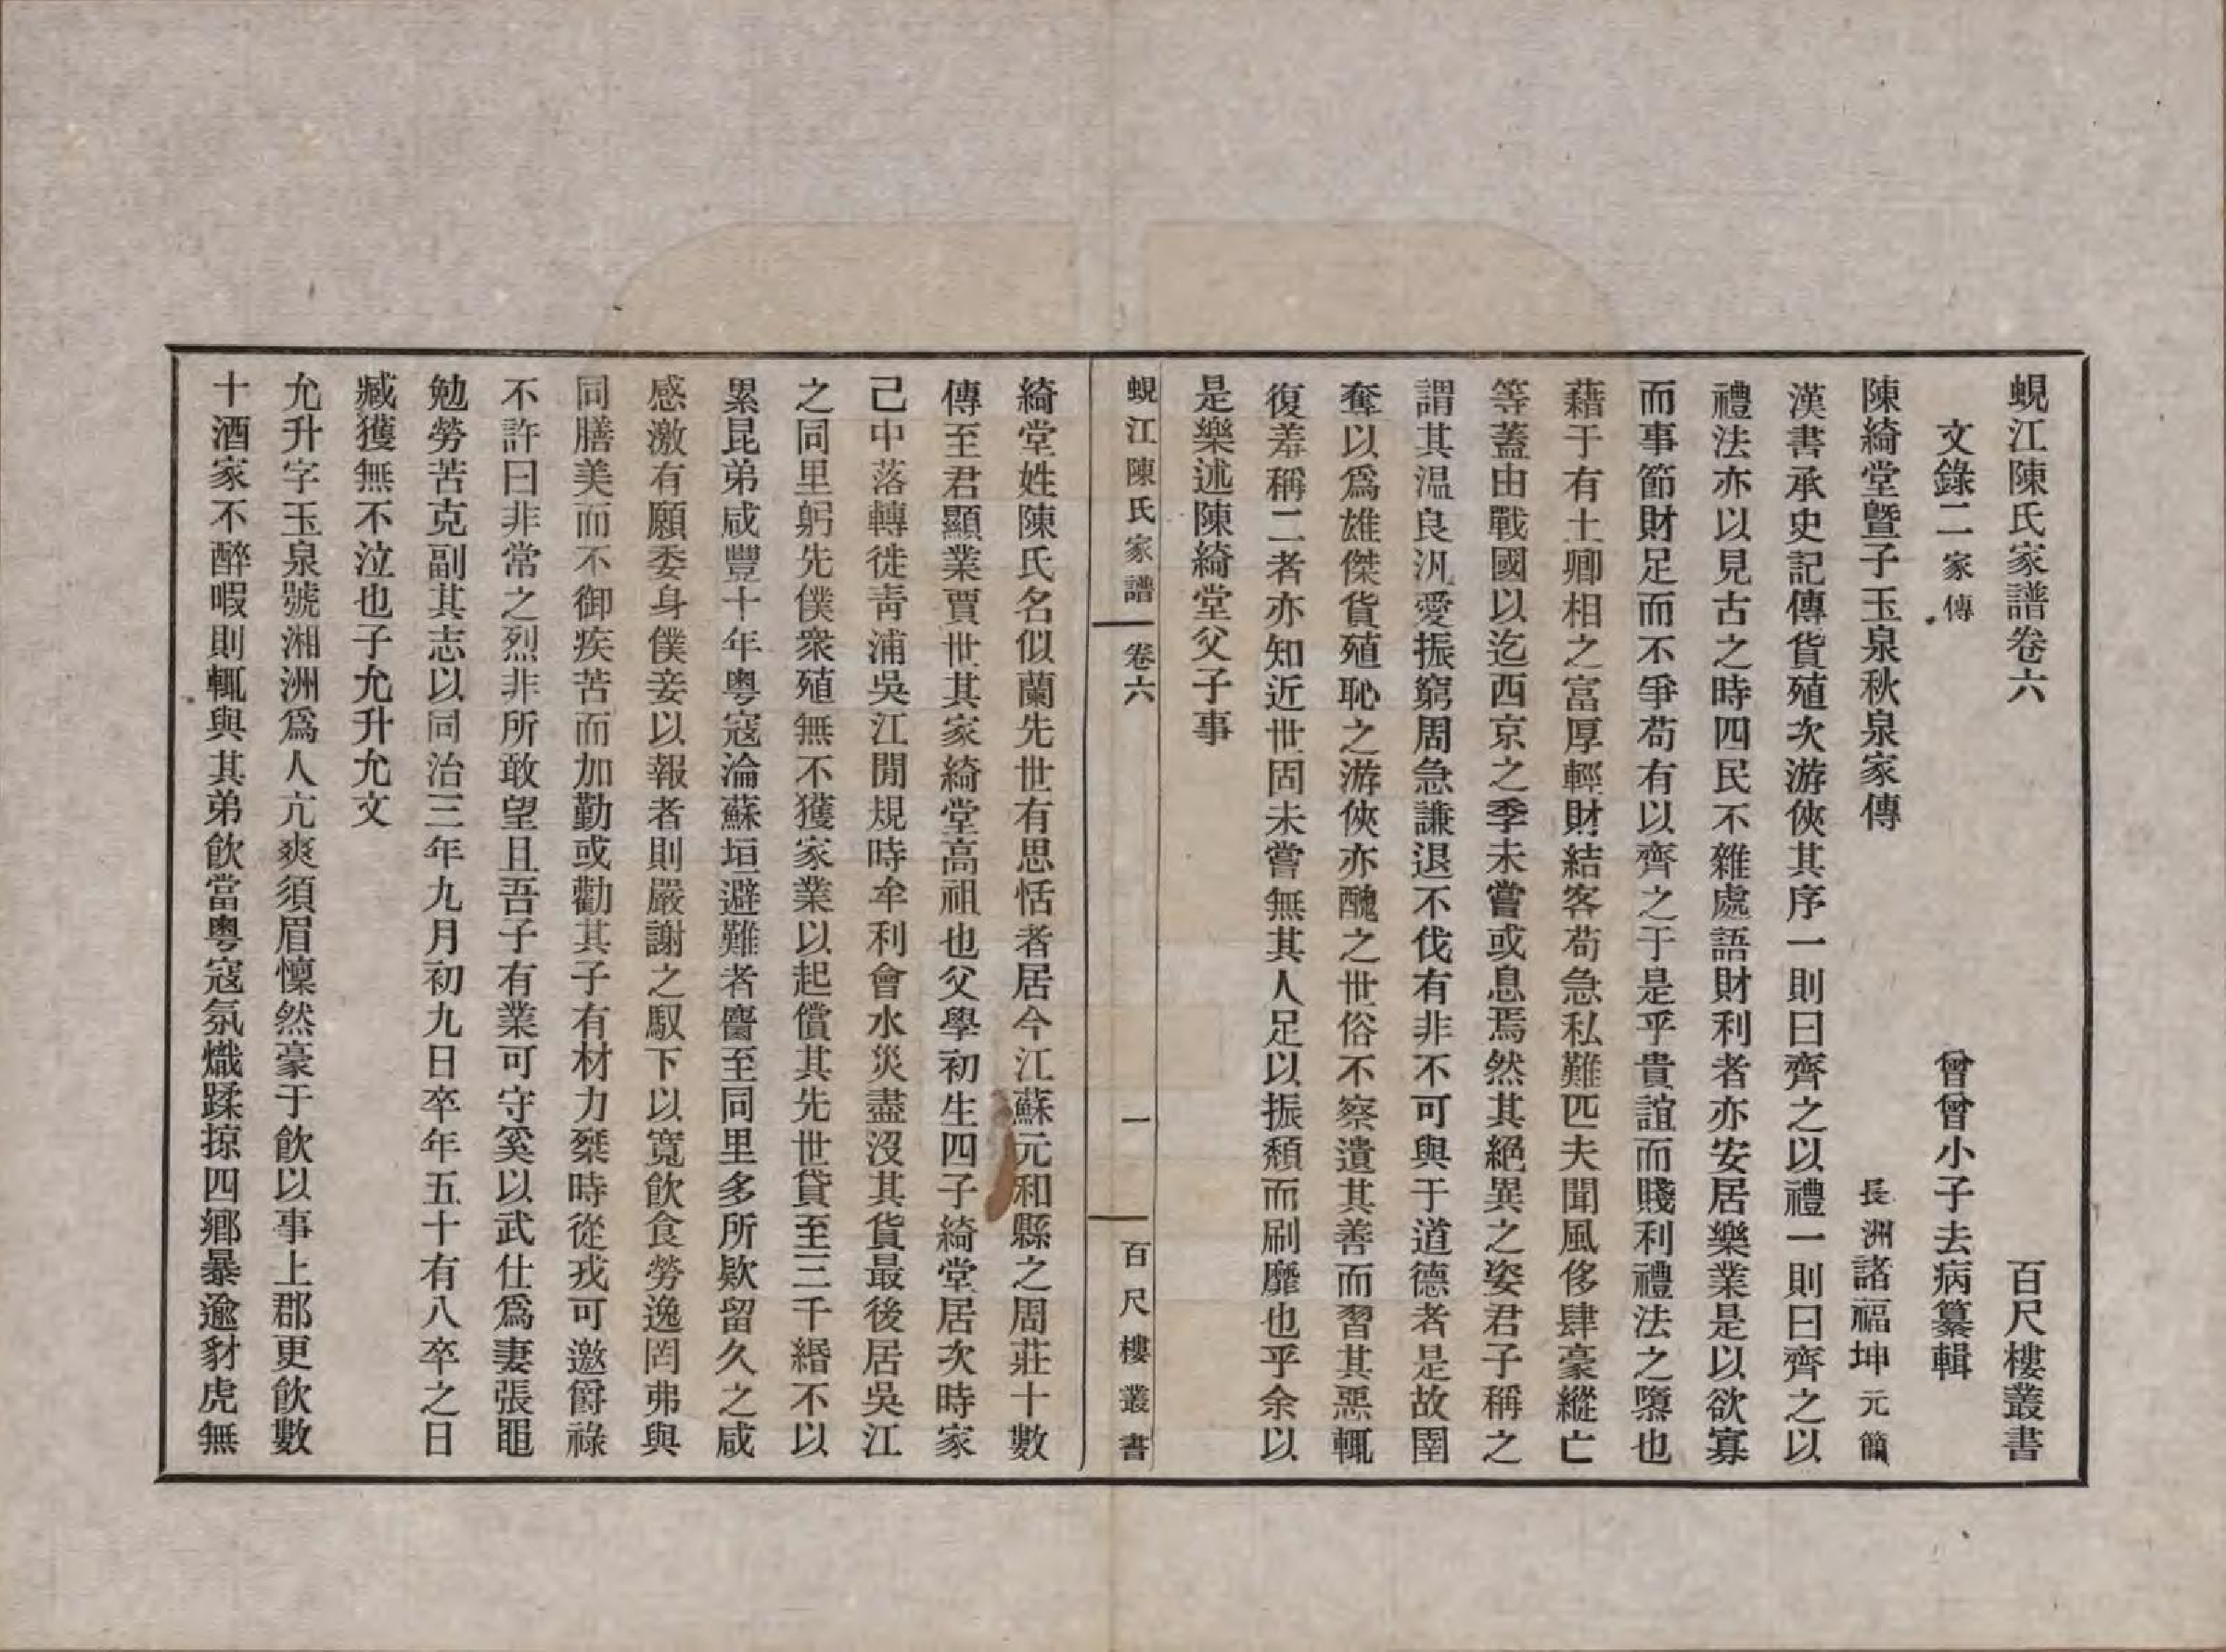 蜆江陳氏家譜卷六 百尺樓叢書
文錄二家傳 曾曾小子去病纂輯
陳綺堂暨子玉泉秋泉家傳 長洲諸福坤元簡
漢書承史記傳貨殖次游俠其序一則曰齊之以禮一則曰齊之以
禮法亦以見古之時四民不雜處語財利者亦安居樂業是以欲寡
而事節財足而不爭苟有以齊之于是乎貴誼而賤利禮法之隳也
藉于有土卿相之富厚輕財結客苟急私難匹夫聞風侈肆豪縱亡
等蓋由戰國以迄西京之季未嘗或息焉然其絕異之姿君子稱之
謂其温良汎愛振窮周急謙退不伐有非不可與于道德者是故閨
奪以爲雄傑貨殖恥之游俠亦醜之世俗不察遺其善而習其惡輒
復羞稱二者亦知近世固未嘗無其人足以振頹而刷靡也乎余以
是樂述陳綺堂父子事
蜆江陳氏家譜 卷六 一 百尺樓叢書
綺堂姓陳氏名似蘭先世有思恬者居今江蘇元和縣之周莊十數
傳至君顯業賈世其家綺堂高祖也父學初生四子綺堂居次時家
己中落轉徙靑浦吳江閒規時牟利會水災盡沒其貨最後居吳江
之同里躬先僕衆殖無不獲家業以起償其先世貸至三千緡不以
累昆弟咸豐十年粵寇淪蘇垣避難者麕至同里多所欵留久之咸
感激有願委身僕妾以報者則嚴謝之馭下以寬飲食勞逸罔弗與
同膳美而不御疾苦而加勤或勸其子有材力椉時從戎可邀爵祿
不許曰非常之烈非所敢望且吾子有業可守奚以武仕爲妻張黽
勉勞苦克副其志以同治三年九月初九日卒年五十有八卒之日
臧獲無不泣也子允升允文
允升字玉泉號湘洲爲人亢爽須眉懍然豪于飲以事上郡更飲數
十酒家不醉暇則輒與其弟飲當粵寇氛熾蹂掠四鄉暴逾豺虎無